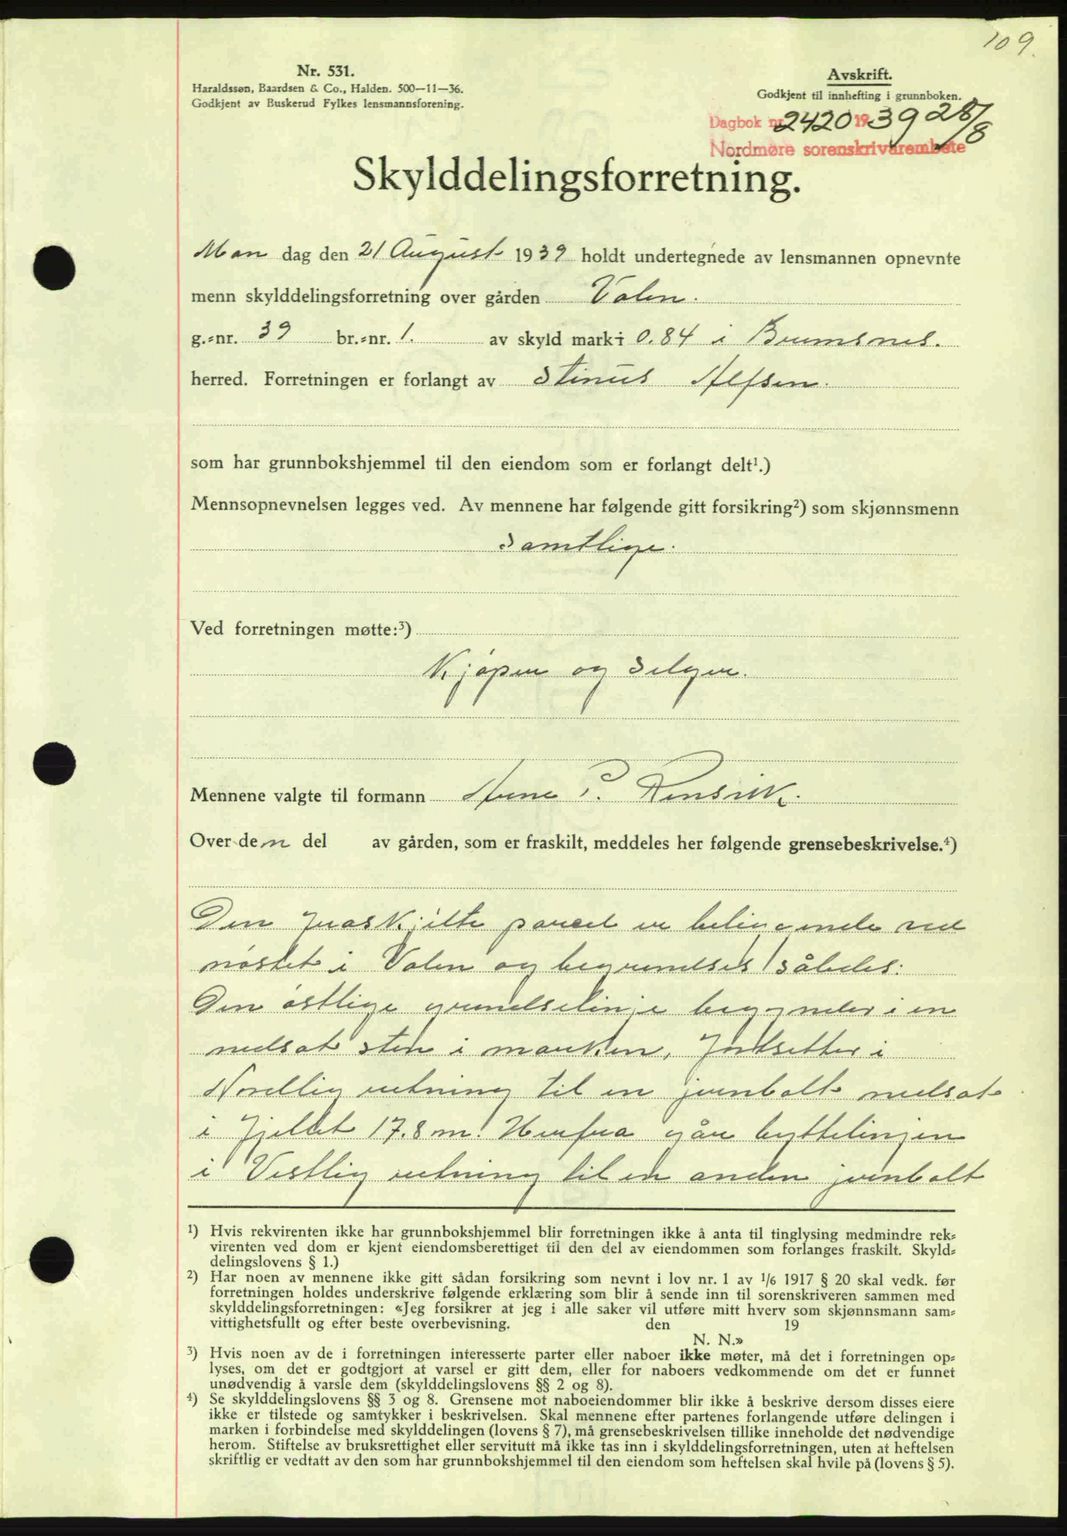 109.
Nr. 531.
Haraldssøn, Baardsen & Co., Halden. 500—11—36.
Godkjent av Buskerud Fylkes lensmannsforening.
Avskrift.
Godkjent til innhefting i grunnboken.
Dagbok nr. 2420 1939 28/8
Nordmøre sorenskrivarembete
Skylddelingsforretning.
Man dag den 21 August 1939 holdt undertegnede av lensmannen opnevnte
menn skylddelingsforretning over gården Valen.
g.-nr. 39 br.-nr. 1. av skyld mark 0.84 i Bremsnes.
herred. Forretningen er forlangt av Stinus Alfsen.
som har grunnbokshjemmel til den eiendom som er forlangt delt¹.)
Mennsopnevnelsen legges ved. Av mennene har følgende gitt forsikring²) som skjønnsmenn
Samtlige.
Ved forretningen møtte:³)
Kjøper og Selger.
Mennene valgte til formann Arne P. Rensvik.
Over den del av gården, som er fraskilt, meddeles her følgende grensebeskrivelse.⁴)
Den fraskjilte parcel er beliggende ved
nøstet i Valen og begrendses således:
Den østlige grendselinje begynder i en
nedsat sten i marken, fortsetter i
Nordlig retning til en jernbolt nedsat
i Fjellet 17.8 m. Herfra går byttelinjen
i Vestlig retning til en anden jernbolt
¹) Hvis rekvirenten ikke har grunnbokshjemmel blir forretningen ikke å anta til tinglysing medmindre rek-
virenten ved dom er kjent eiendomsberettiget til den del av eiendommen som forlanges fraskilt. Skyld-
delingslovens § 1.)
²) Har noen av mennene ikke gitt sådan forsikring som nevnt i lov nr. 1 av 1/6 1917 § 20 skal vedk. før
forretningen holdes underskrive følgende erklæring som blir å sende inn til sorenskriveren sammen med
skylddelingsforretningen: «Jeg forsikrer at jeg i alle saker vil utføre mitt hverv som skjønnsmann sam-
vittighetsfullt og efter beste overbevisning. den 19
N. N.»
³) Hvis noen av de i forretningen interesserte parter eller naboer ikke møter, må det i forretningen op-
lyses, om det er godtgjort at varsel er gitt dem, eller for naboers vedkommende om det er funnet
unødvendig å varsle dem (skylddelingslovens §§ 2 og 8).
⁴) Se skylddelingslovens §§ 3 og 8. Grensene mot naboeiendommer blir ikke å beskrive dersom disses eiere
ikke er tilstede og samtykker i beskrivelsen. Skal mennene efter partenes forlangende utføre delingen i
marken i forbindelse med skylddelingen (lovens § 7), må grensebeskrivelsen tillike inneholde det nødvendige
herom. Stiftelse av bruksrettighet eller servitutt må ikke tas inn i skylddelingsforretningen, uten at heftelsen
skriftlig er vedtatt av den som har grunnbokshjemmel til den eiendom som heftelsen skal hvile på (lovens § 5).